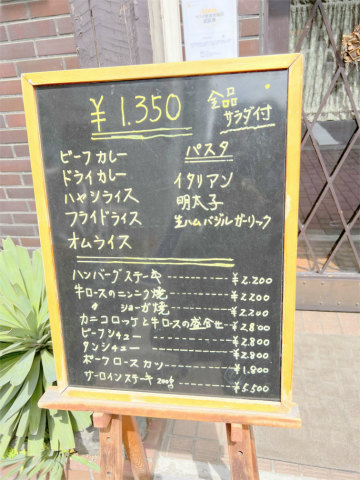 ¥1.350
全品
サラダ付
ビーフカレー
ドライカレー
ハヤシライス
フライドライス
オムライス
パスタ
イタリアン
明太子
生ハムバジルガーリック
ハンバーグステーキ ¥2.200
牛ロースのニンニク焼 ¥2.200
〃 ショーガ焼 ¥2.200
カニコロッケと牛ロースの盛合せ ¥2.800
ビーフシチュー ¥2.800
タンシチュー ¥2.800
ポークロースカツ ¥1.800
サーロインステーキ200g ¥5.500